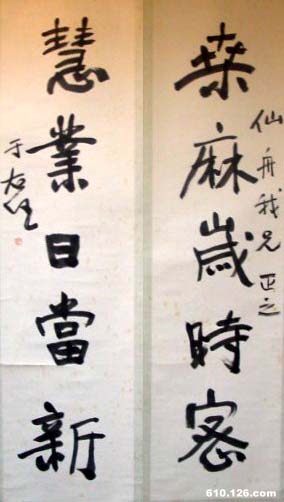 仙舟我兄 正之
桑麻歲時密
慧業日當新
于右任
610.126.com